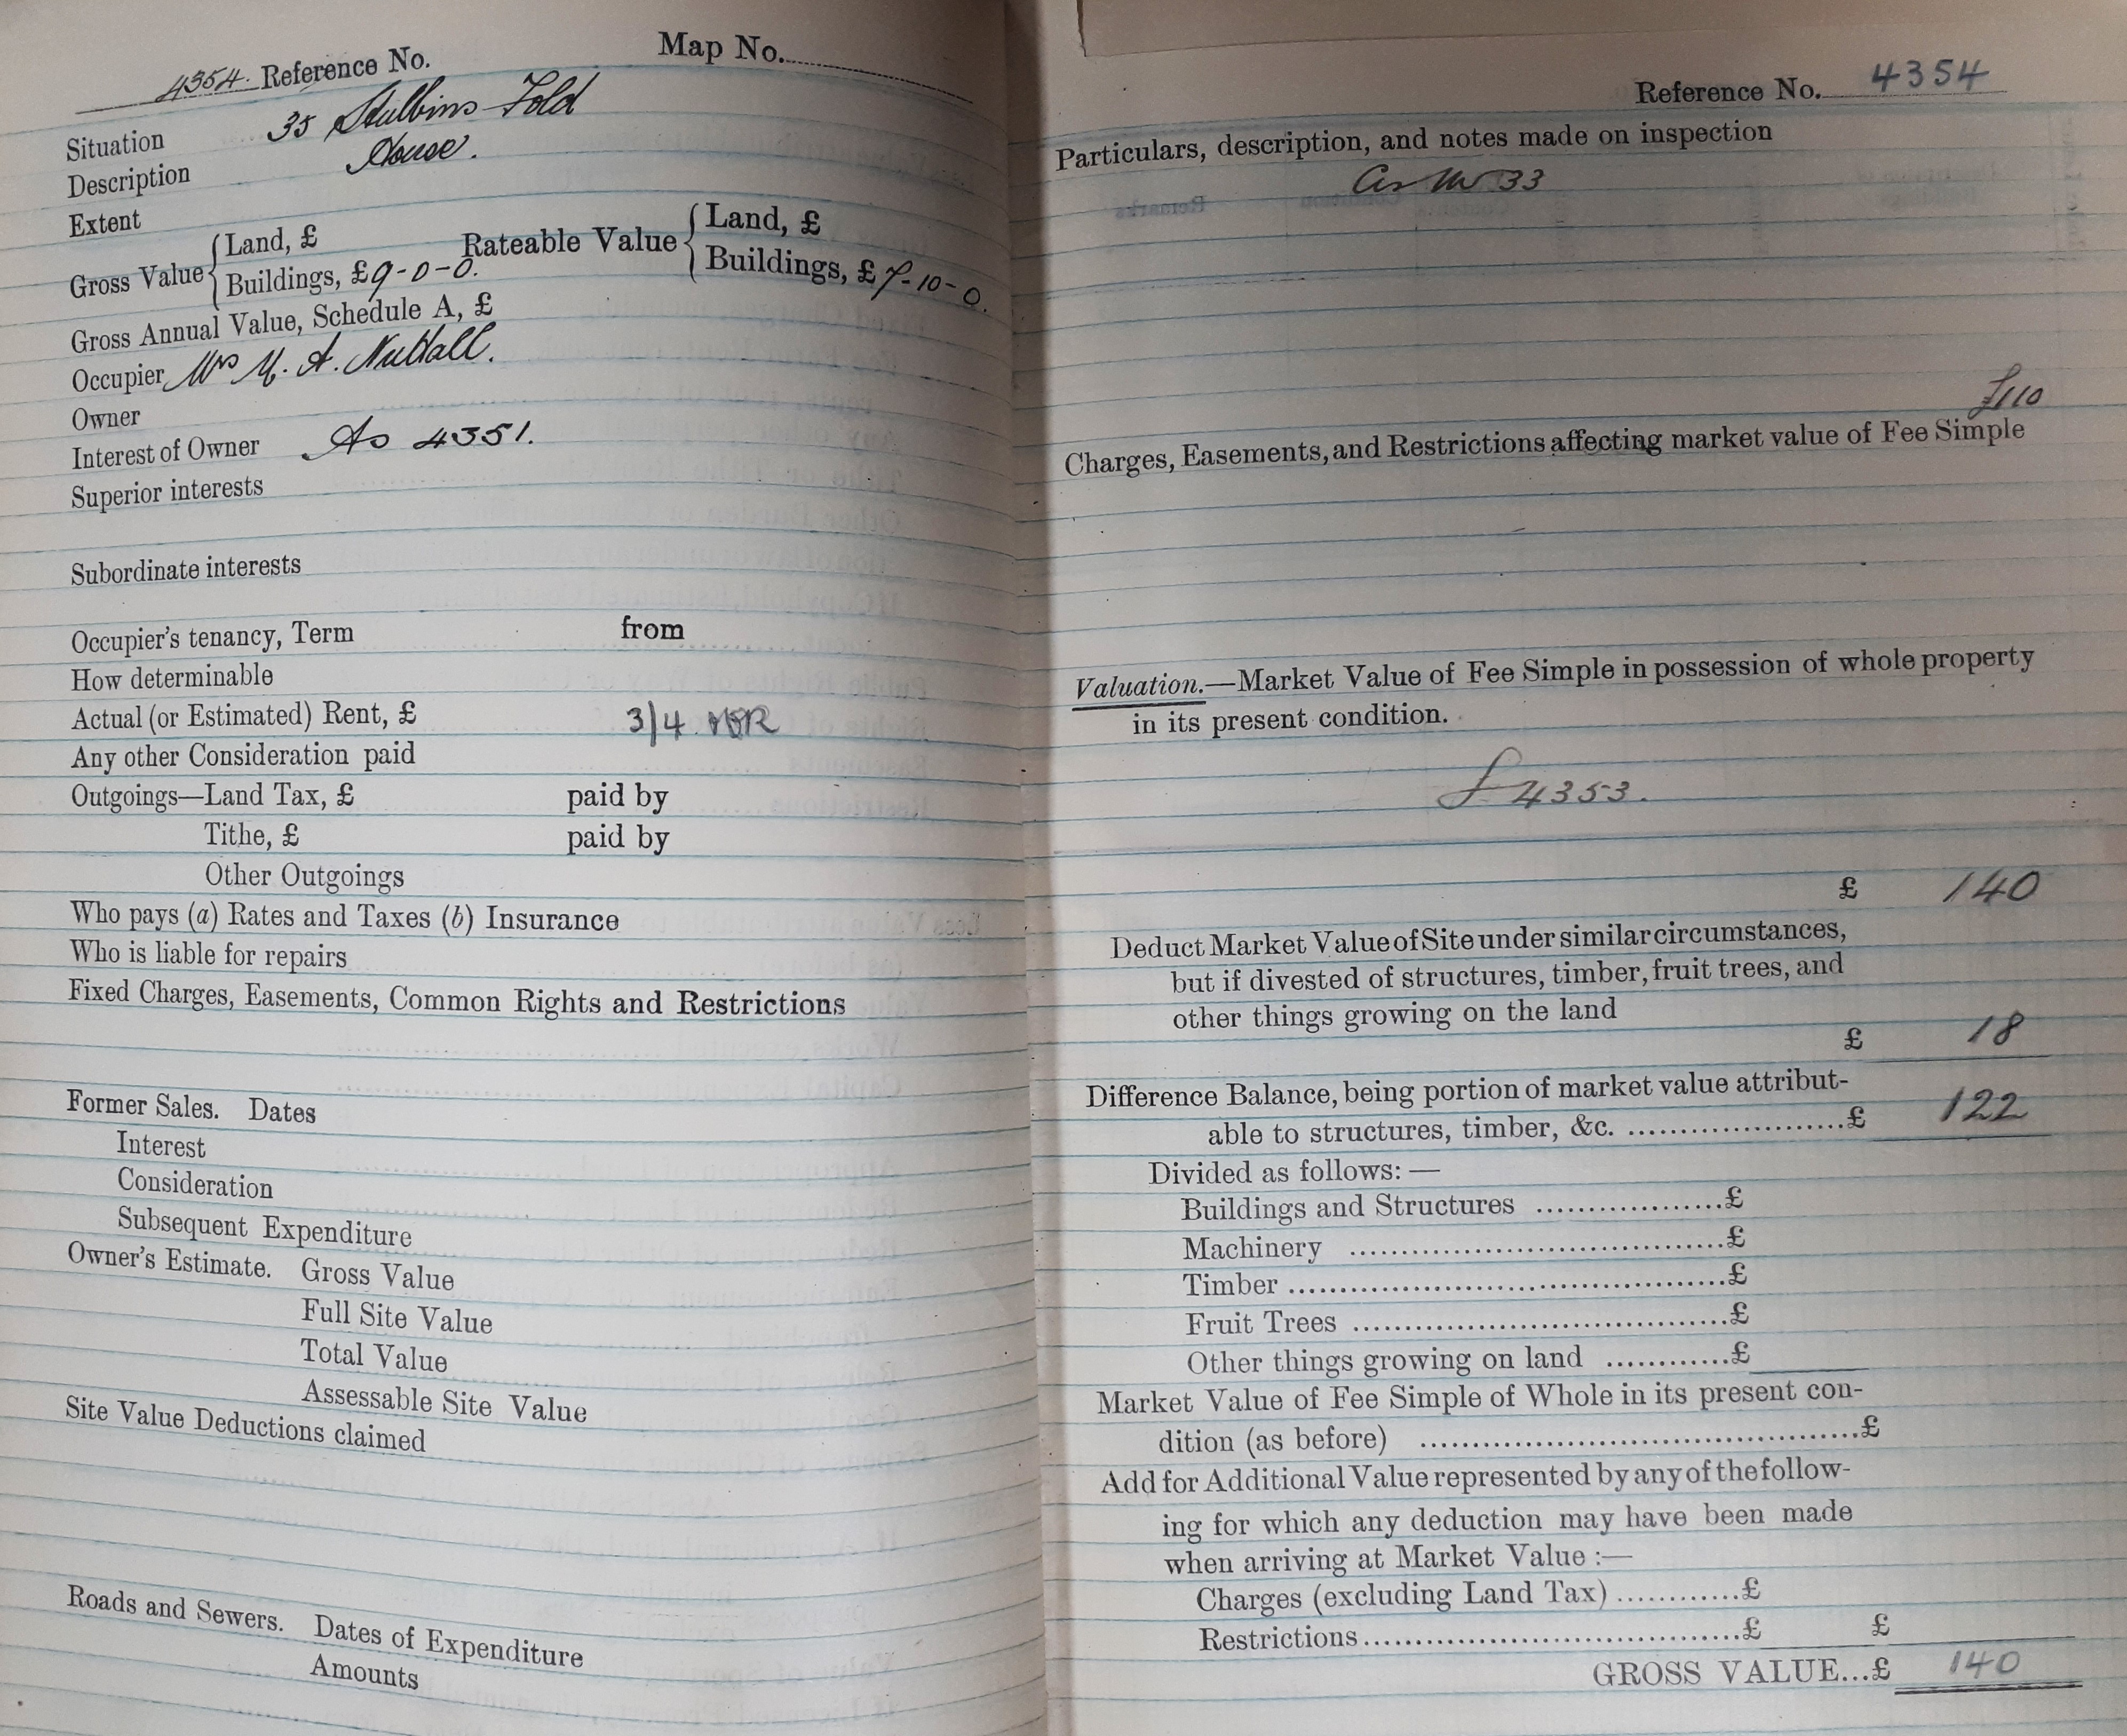 4354. Reference No. Map No.
Situation 35 Stubbins Fold
Description House.
Extent
Gross Value { Land, £ Rateable Value { Land, £
Buildings, £9-0-0. Buildings, £7-10-0.
Gross Annual Value, Schedule A, £
Occupier Mrs M. A. Nuttall.
Owner
Interest of Owner As 4351.
Superior interests
Subordinate interests
Occupier's tenancy, Term from
How determinable
Actual (or Estimated) Rent, £ 3/4
Any other Consideration paid
Outgoings—Land Tax, £ paid by
Tithe, £ paid by
Other Outgoings
Who pays (a) Rates and Taxes (b) Insurance
Who is liable for repairs
Fixed Charges, Easements, Common Rights and Restrictions
Former Sales. Dates
Interest
Consideration
Subsequent Expenditure
Owner's Estimate. Gross Value
Full Site Value
Total Value
Assessable Site Value
Site Value Deductions claimed
Roads and Sewers. Dates of Expenditure
Amounts
Reference No. 4354
Particulars, description, and notes made on inspection
33
£110
Charges, Easements, and Restrictions affecting market value of Fee Simple
Valuation.—Market Value of Fee Simple in possession of whole property
in its present condition.
4353.
£ 140
Deduct Market Value of Site under similar circumstances,
but if divested of structures, timber, fruit trees, and
other things growing on the land
£ 18
Difference Balance, being portion of market value attribut-
able to structures, timber, &c. ....................£ 122
Divided as follows:—
Buildings and Structures ..................£
Machinery ....................................£
Timber ..........................................£
Fruit Trees ....................................£
Other things growing on land ............£
Market Value of Fee Simple of Whole in its present con-
dition (as before) ..........................................£
Add for Additional Value represented by any of the follow-
ing for which any deduction may have been made
when arriving at Market Value :—
Charges (excluding Land Tax) ............£
Restrictions....................................£ £
GROSS VALUE...£ 140